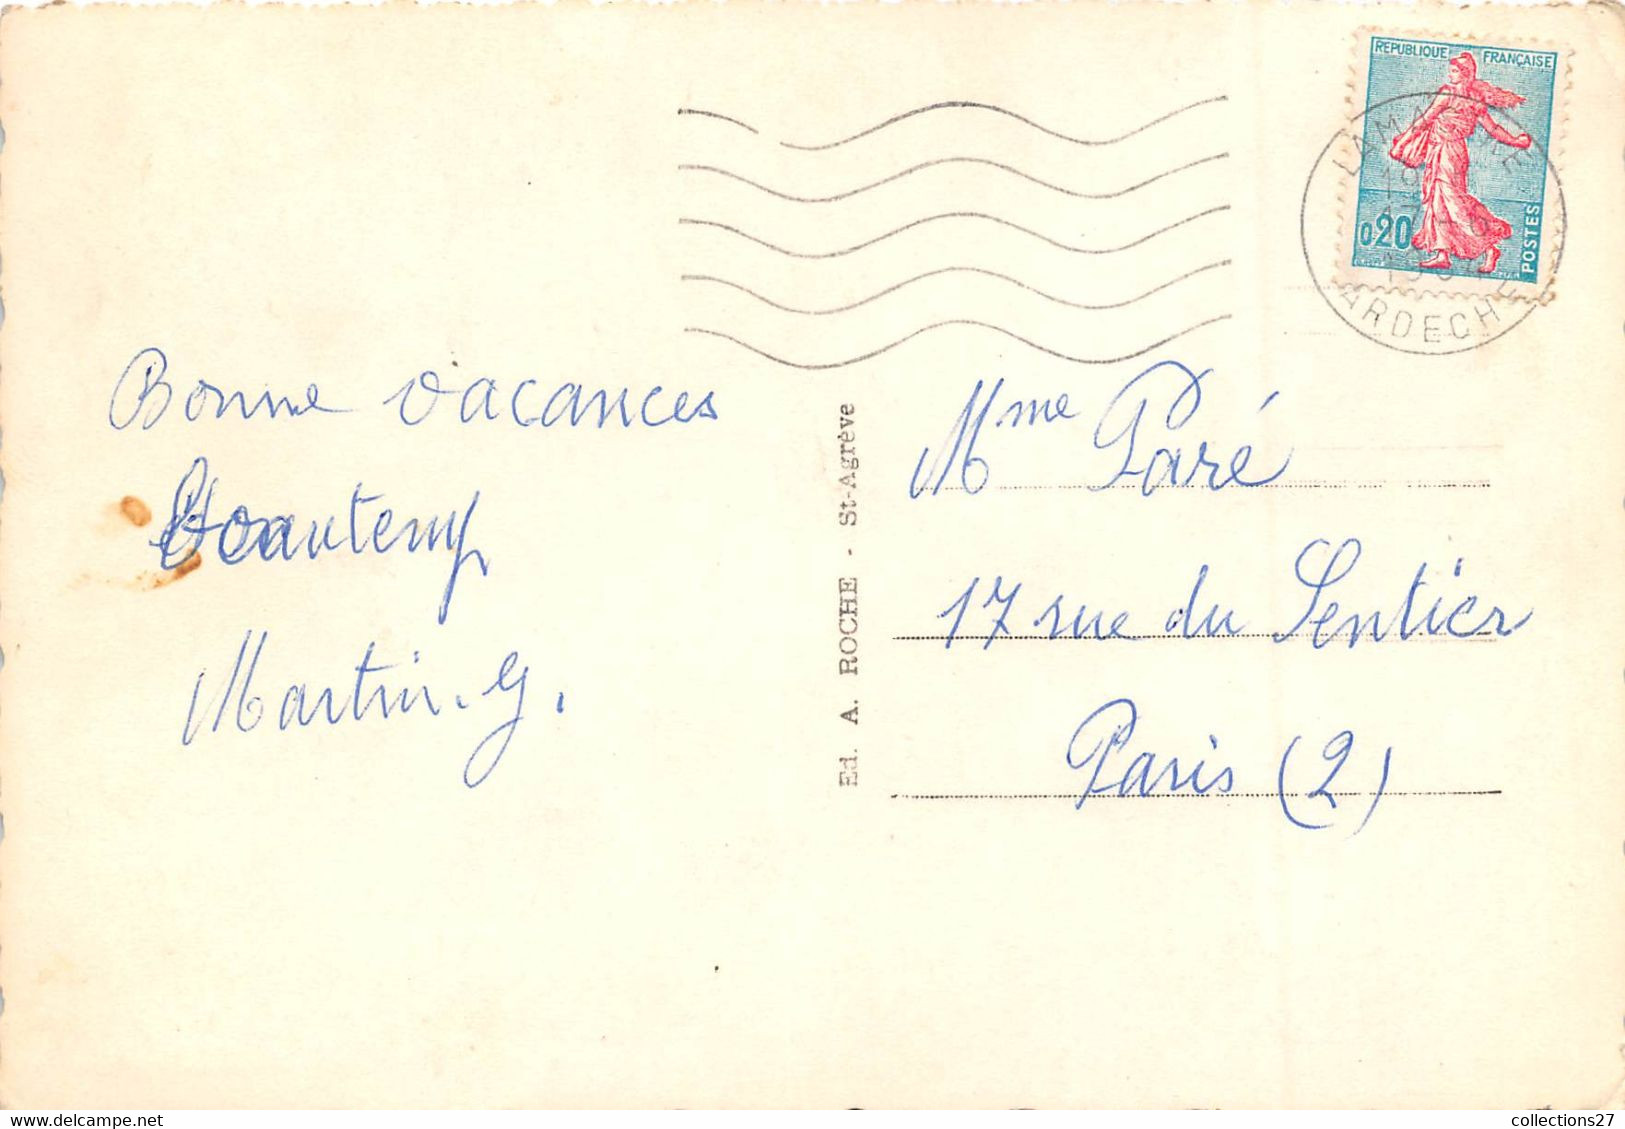 REPUBLIQUE FRANÇAISE
0,20
POSTES
LAMASTRE
ARDECHE
Bonne vacances
Beautemp
Martin. G.
Ed. A. ROCHE - St-Agrève
Mme Paré
17 rue du Sentier
Paris (2)
collections27